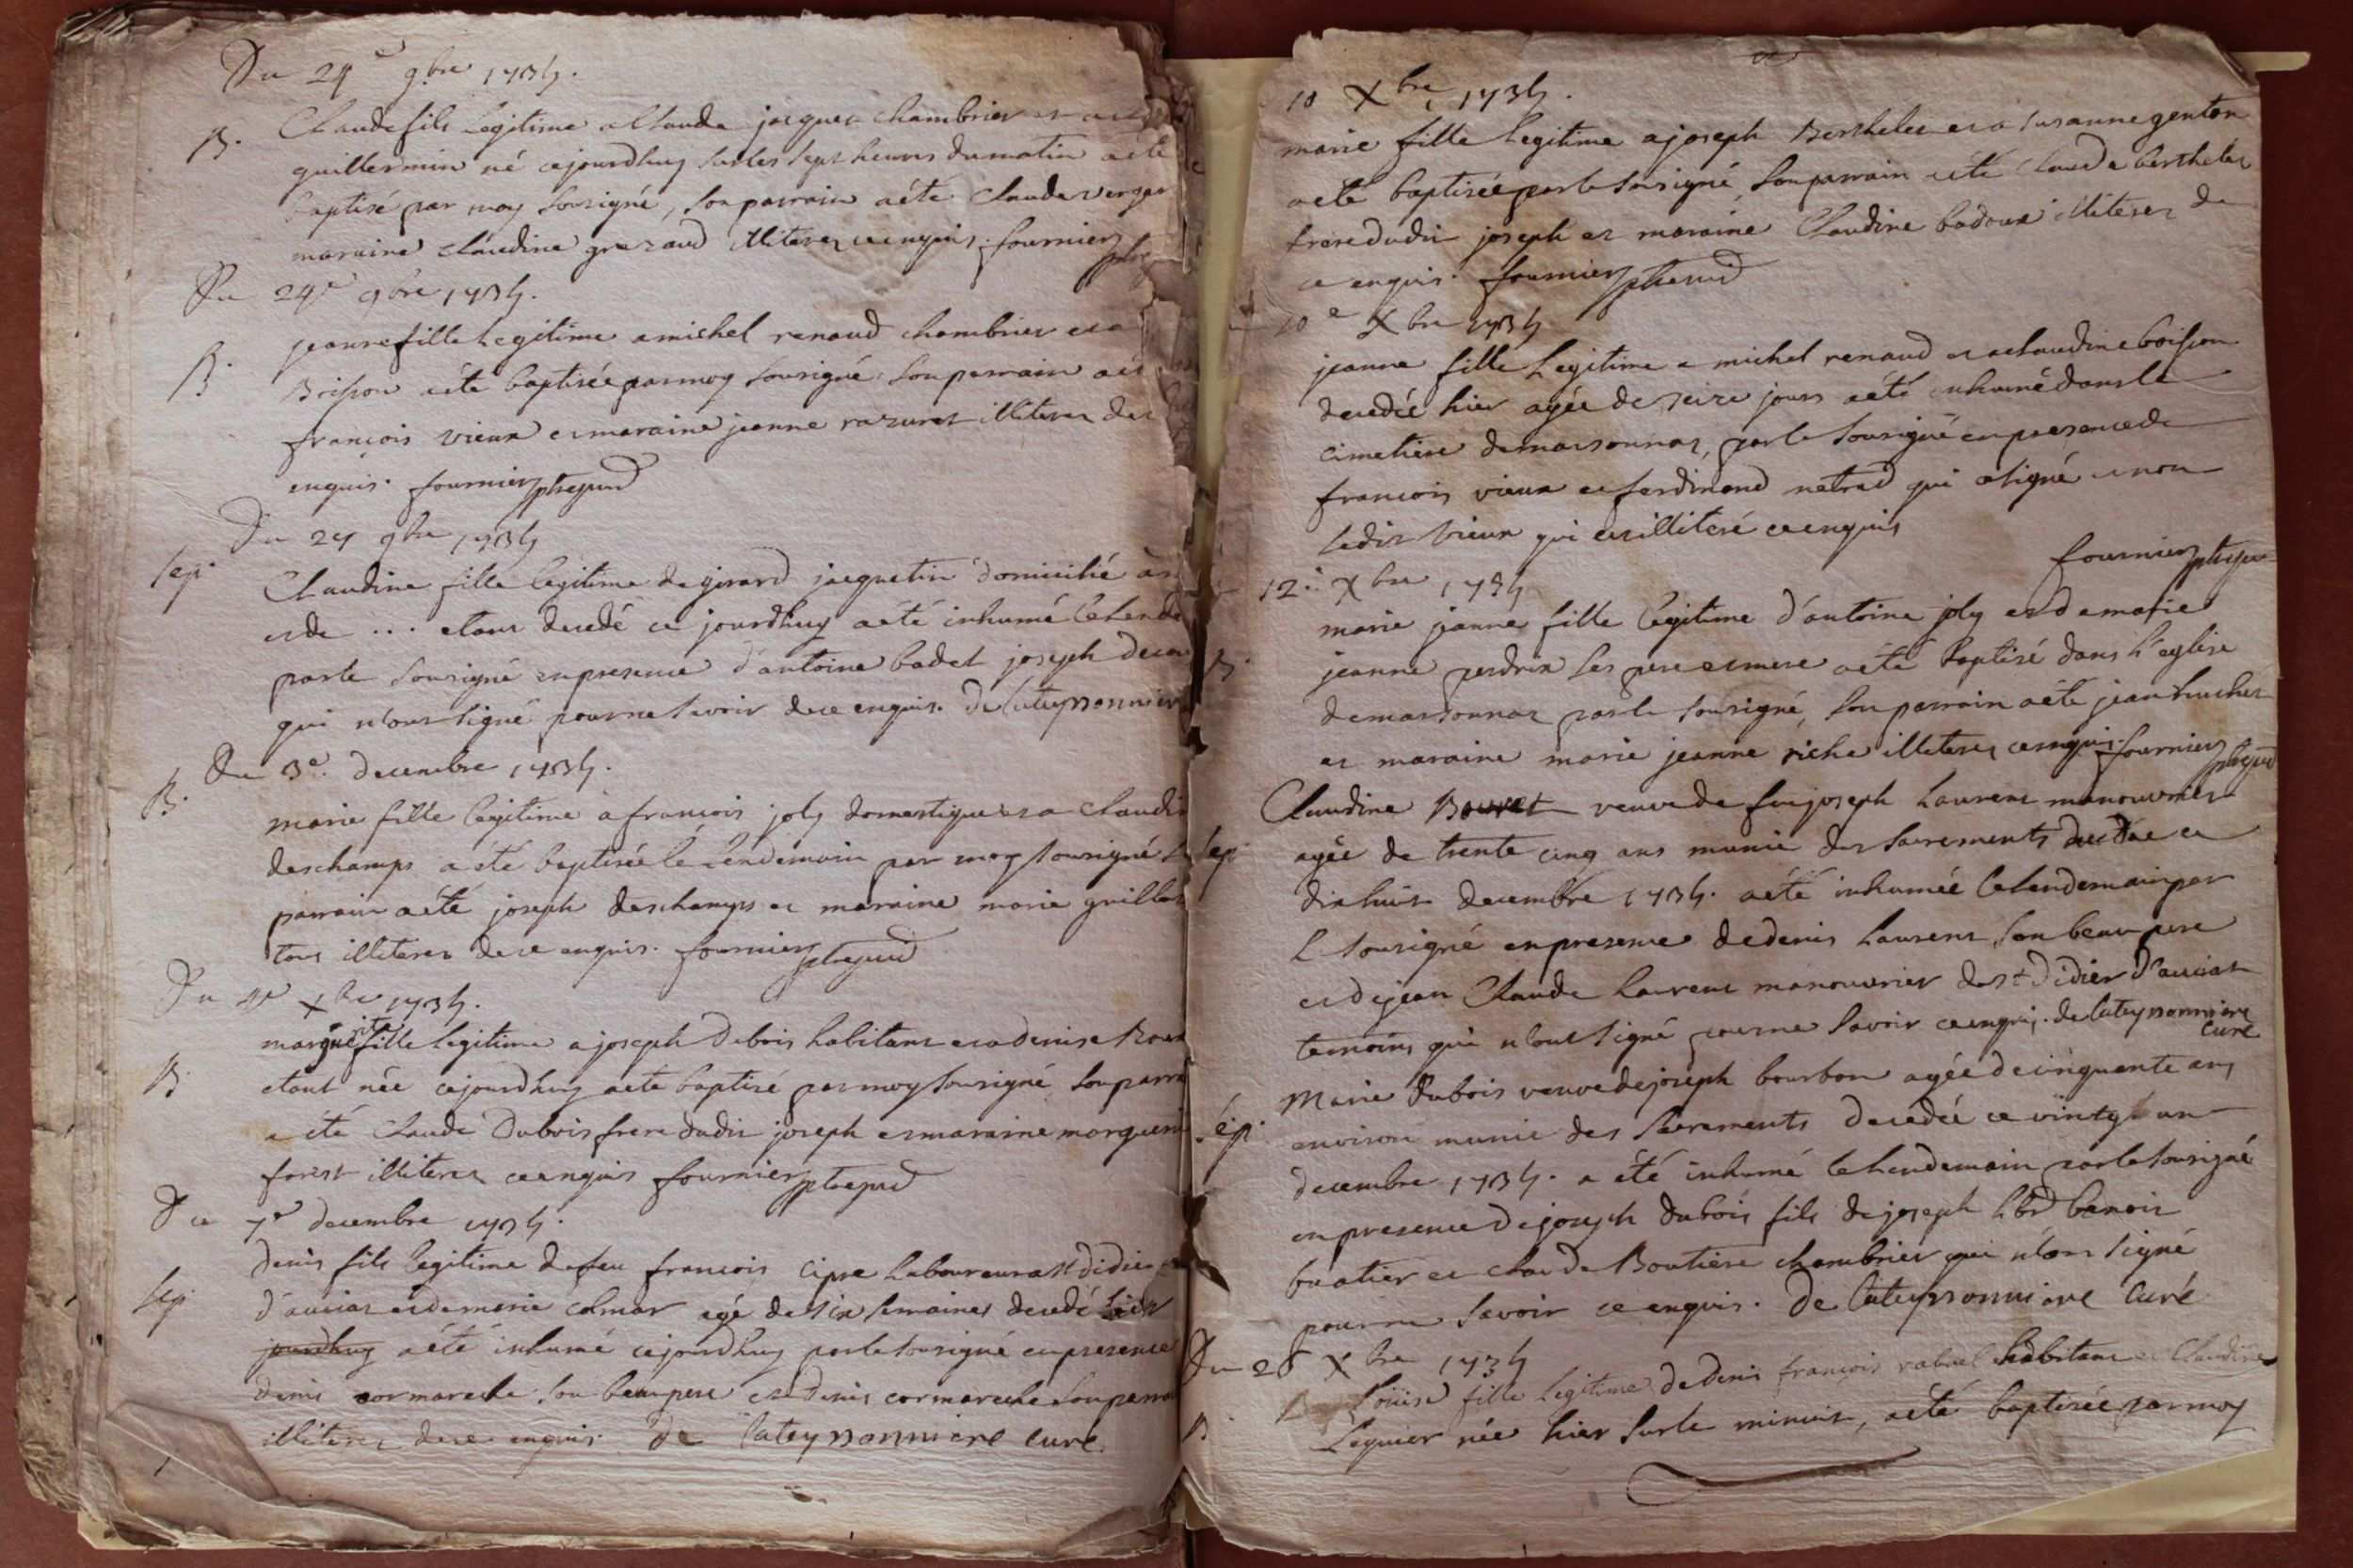 Du 24e 9bre 1734.
B. Claude fils legitime a Claude jacques chambrier et a
guillermin né cejourdhuy sur les sept heures du matin aété
baptisé par moy sousigné, son parrain aété Claude verger
maraine claudine grezaud illiterez ce enquis. fournier ptre
Du 24e 9bre 1734.
B. jeanne fille Legitime a michel renaud chambrier et a
Boisson aété baptisée par moy sousigné son parrain aété
françois vieux et maraine jeanne razuret illiterez de ce
enquis. fournier
Du 24 9bre 1734
Sep. Claudine fille legitime de girard jacquetin domicilié
et de ... etant decedé ce jourdhuy aété inhumé le lende
par le sousigné en presence d'antoine badet joseph
qui n'ont signé pour ne savoir de ce enquis. De Lateyssonniere
Du 3e. decembre 1734.
B. marie fille legitime a françois joly domestique et a Claudine
deschamps a eté baptisée le lendemain par moy sousigné
parrain aété joseph deschamps et maraine marie guillot
tous illiterez de ce enquis. fournier
Du 4e Xbre 1734.
marguerite fille legitime a joseph Dubois habitant et a denise
B. etant née cejourdhuy aeté baptisé par moy sousigné, son parra
a été Claude Dubois frere dudit joseph et maraine marguerite
forest illiterez ce enquis fournier
Du 7e decembre 1734.
denis fils legitime de feu françois Cipre Laboureur a St didier
Sep. d'aussiat et de marie colmar agé de six semaines decedé hier
jourdhuy aété inhumé cejourdhuy par le sousigné en presence
denis cormareche son beaupere et denis cormareche son parra
illiterez de ce enquis. De Lateyssonniere curé.
10 Xbre 1734.
marie fille legitime a joseph Berthelet et a susanne genton
aeté baptisée par le sousigné, son parrain aété Claude berthelet
frere dudit joseph et maraine Claudine badoux illiterez de
ce enquis. fournier
10e Xbre 1734
jeanne fille Legitime a michel renaud et a claudine boisson
decedée hier agée de seize jours aété inhumé dans le
cimetiere de marsonnas, par le sousigné en presence de
françois vieux et ferdinand netrad qui a signé et non
ledit vieux qui est illiteré ce enquis
fournier
12e Xbre 1734
marie jeanne fille legitime d'antoine joly et de marie
B. jeanne perdrix ses pere et mere aété baptisé dans l'eglise
de marsonnas par le sousigné, son parrain aété jean
et maraine marie jeanne riche illiterez ce enquis. fournier
Claudine Bouret veuve de feu joseph Laurent manouvrier
Sep. agée de trente cinq ans munie des sacrements decedée ce
dix huit decembre 1734. aété inhumée le lendemain par
le sousigné en presence de denis Laurent son beaupere
et de jean Claude Laurent manouvrier de St Didier d'aussiat
temoins qui n'ont signé pour ne savoir ce enquis. de Lateyssonniere
curé
Marie Dubois veuve de joseph bourbon agée de cinquante ans
Sép. environ munie des sacrements decedée ce vingt un
decembre 1734. a été inhumé le lendemain par le sousigné
en presence de joseph dubois fils de joseph benoit
buatier et claude Boutiere chambrier qui n'ont signé
pour ne savoir ce enquis. De Lateyssonniere Curé
Du 28 Xbre 1734
Loüise fille legitime de denis françois rabuel habitant et Claudine
B. Leguier née hier sur le minuit, aété baptisée par moy